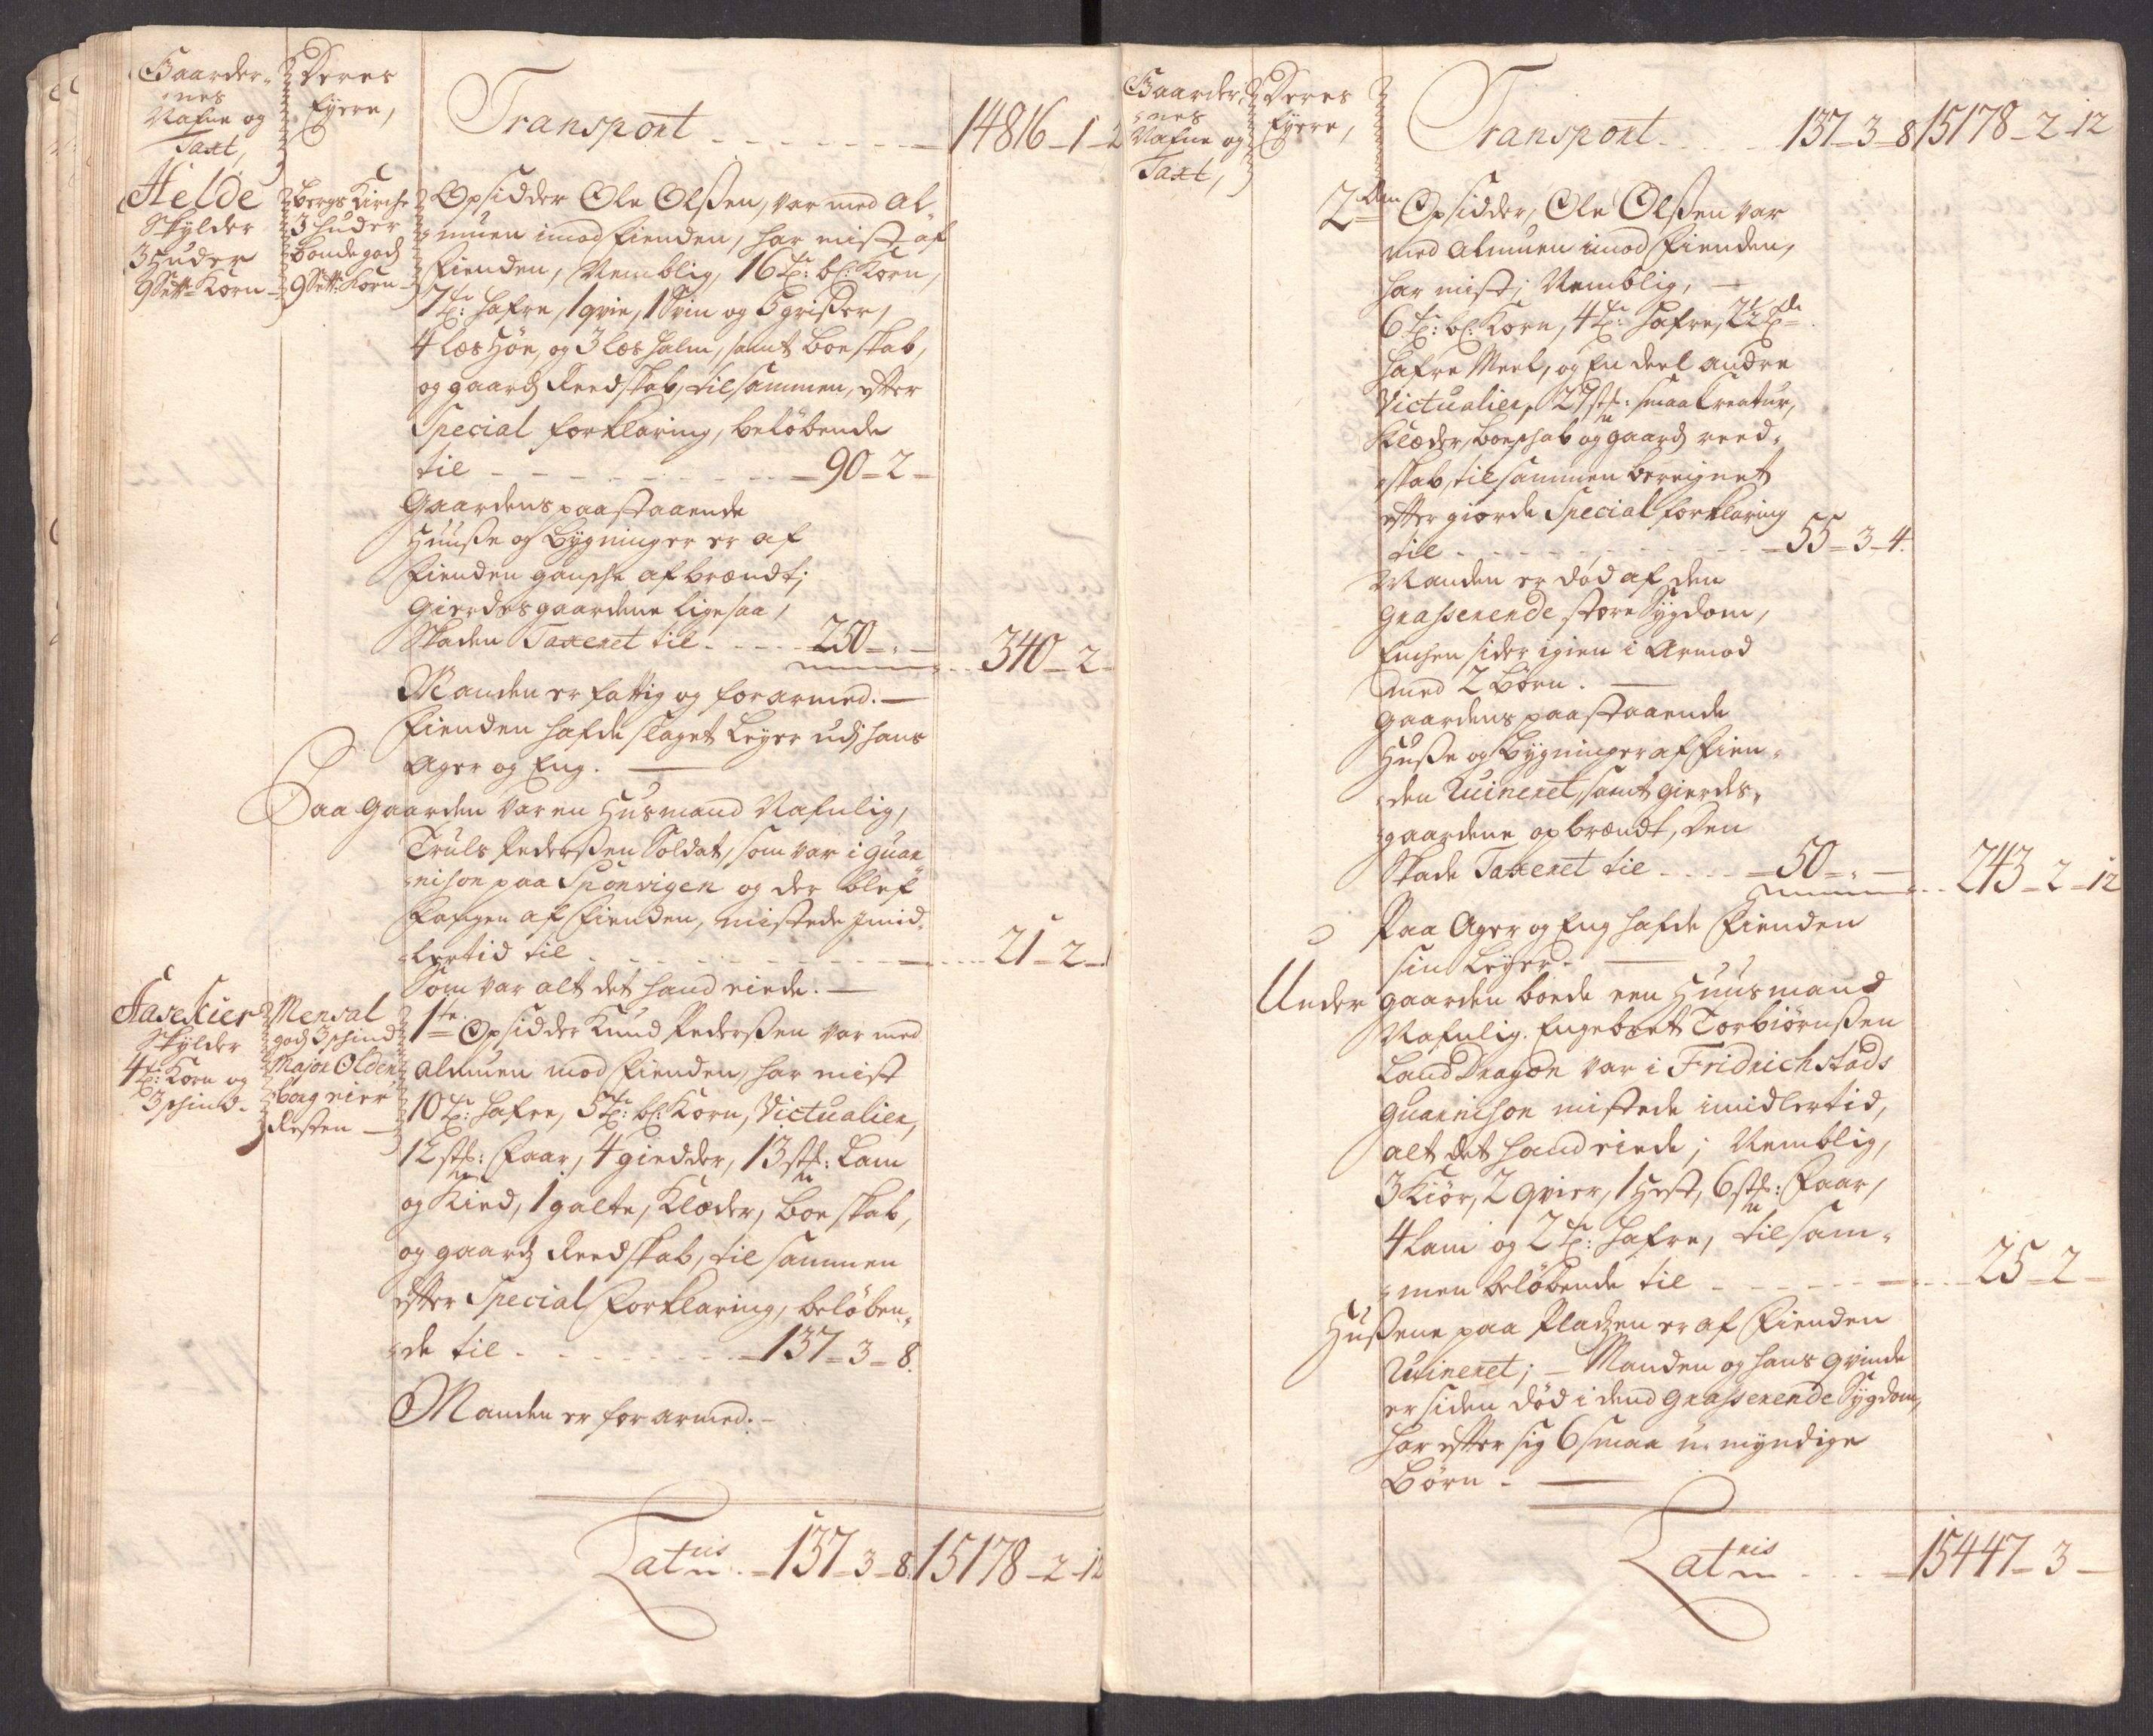 Gaarder-
nes
Nafne og
Taxt,
Deres
Eyere,
Transport - - - - - - 14816 - 1 - 2
Helde
Skylder
3 Huder
9 Sett: Korn -
Bergs Kirche
3 huder
bondegods
9 Sett: Korn -
Opsidder Ole Olßen, var med Al-
muen imod Fienden, har mist af
Fienden, Nemblig, 16 Tr: bl: Korn,
7 Tr: hafre, 1 qvie, 1 Svin og 5 grißer,
4 læs høe, og 3 læs halm, samt boeskab,
og gaards Reedskab, tilsammen, efter
Special forklaring, beløbende
til - - - - - - 90 - 2 -
Gaardens paastaaende
Huuse og bygninger er af
Fienden gansche afbrændt;
Gierdesgaardene ligesaa,
Skaden Taxeret til - - - - 250 - " - - - 340 - 2 -
Manden er fattig og forarmed. -
Fienden hafde slaget Leyer udj hans
Ager og Eng. -
Paa Gaarden var en Husmand Nafnlig,
Truls Pederßen Soldat, som var i Guar-
nison paa Sponvigen og der blef
Fangen af Fienden, mistede jmid-
lertid til - - - - - - 21 - 2 -
Som var alt det hand eiede. -
Aasekier
Skylder
4 Tr: Korn og
3 schind.
Mensal
gods 3 schind
Major Olden
borg eier
Resten -
1te Opsidder Knud Pederßen var med
Almuen mod Fienden, har mist
10 Tr: hafre, 5 Tr: bl: Korn, Victualier,
12 stk: Faar, 4 giedder, 13 stk: Lam
og Kied, 1 galte, Klæder, boeskab,
og gaards Reedskab, til sammen
efter Special Forklaring, beløben-
de til - - - - - 137 - 3 - 8.
Manden er forarmed. -
Lateris - 137 - 3 - 8. 15178 - 2 - 12
Gaarder-
nes
Nafne og
Taxt,
Deres
Eyere,
Transport - - - 137 - 3 - 8 15178 - 2 - 12
2den Opsidder, Ole Olßen var
med Almuen imod Fienden,
har mist; Nemblig, -
6 Tr: bl: Korn, 4 Tr: hafre, 2½ Tde
hafre Meel, og En deel andre
Victualier, 27 stk: smaa Creatur,
Klæder, boeschab og gaards reed-
skab, tilsammen bereignet
efter giorde Special forklaring
til - - - - - - 55 - 3 - 4.
Manden er død af den
Grasserende store Sygdom,
Enchen sider igien i Armod
med 2 børn. -
Gaardens paastaaende
Huße og Bygninger af Fien-
den Ruineret, samt gierdes-
gaardene opbrændt, den
Skade Taxeret til - - - 50 - " - - - 243 - 2 - 12
Paa Ager og Eng hafde Fienden
sin Leyer. -
Under gaarden boede een Huusmand
Nafnlig. Engebret Torbiørnßen
Land Dragon var i Fridrichstads
Guarnison mistede imidlertid,
alt det hand eiede; Nemblig,
3 Kiør, 2 qvier, 1 Hest, 6 stk: Faar,
4 Lam og 2 Tr: hafre, tilsam-
men beløbende til - - - - - 25 - 2 -
Hußene paa Pladzen er af Fienden
Ruineret; - Manden og hans qvinde
er siden død i dend Grasserende Sygdom,
har efter sig 6 smaa u-myndige
Børn. -
Lateris - - - 15447 - 3 -